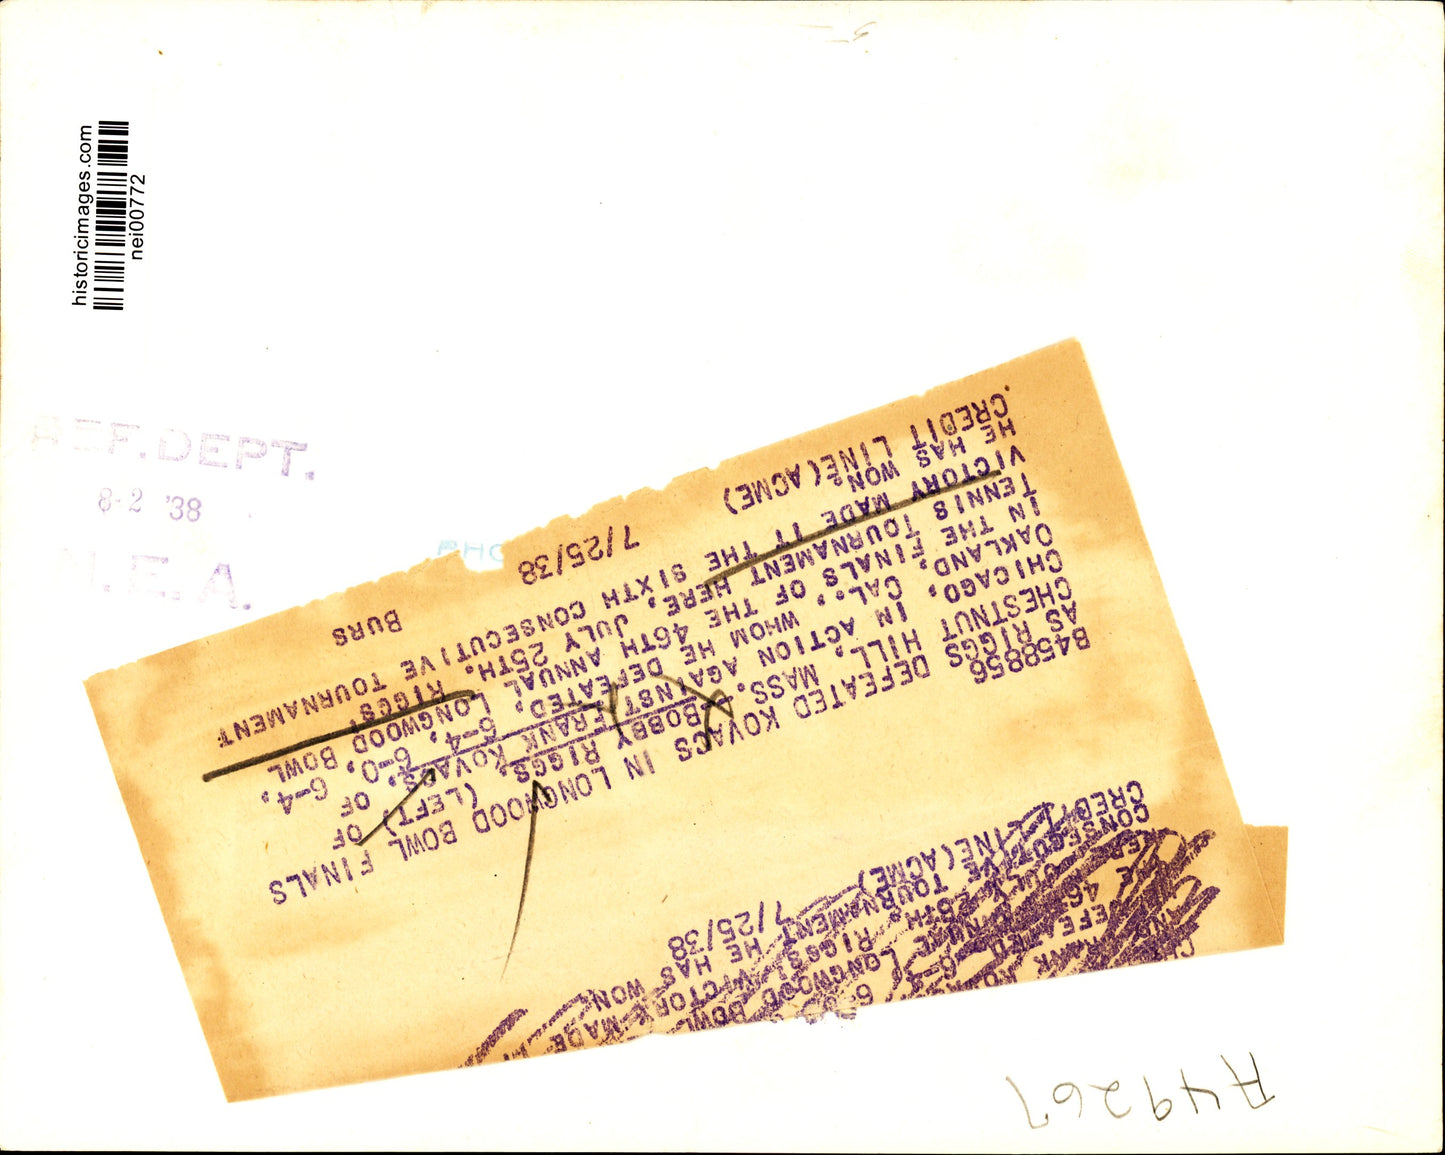 historicimages.com
nei00772
REF. DEPT.
8-2 '38
N.E.A.
PHO
CONSECUTIVE TOURNAMENT HE HAS WON.
CREDIT LINE(ACME) 7/25/38
B458856
AS RIGGS DEFEATED KOVACS IN LONGWOOD BOWL FINALS
CHESTNUT HILL, MASS.--BOBBY RIGGS, (LEFT) OF
CHICAGO, IN ACTION AGAINST FRANK KOVACS, OF
OAKLAND, CAL., WHOM HE DEFEATED, 6-4, 6-0, 6-4,
IN THE FINALS OF THE 46TH ANNUAL LONGWOOD BOWL
TENNIS TOURNAMENT HERE, JULY 25TH. RIGGS'
VICTORY MADE IT THE SIXTH CONSECUTIVE TOURNAMENT
HE HAS WON.
CREDIT LINE(ACME) 7/25/38 BURS
A49267